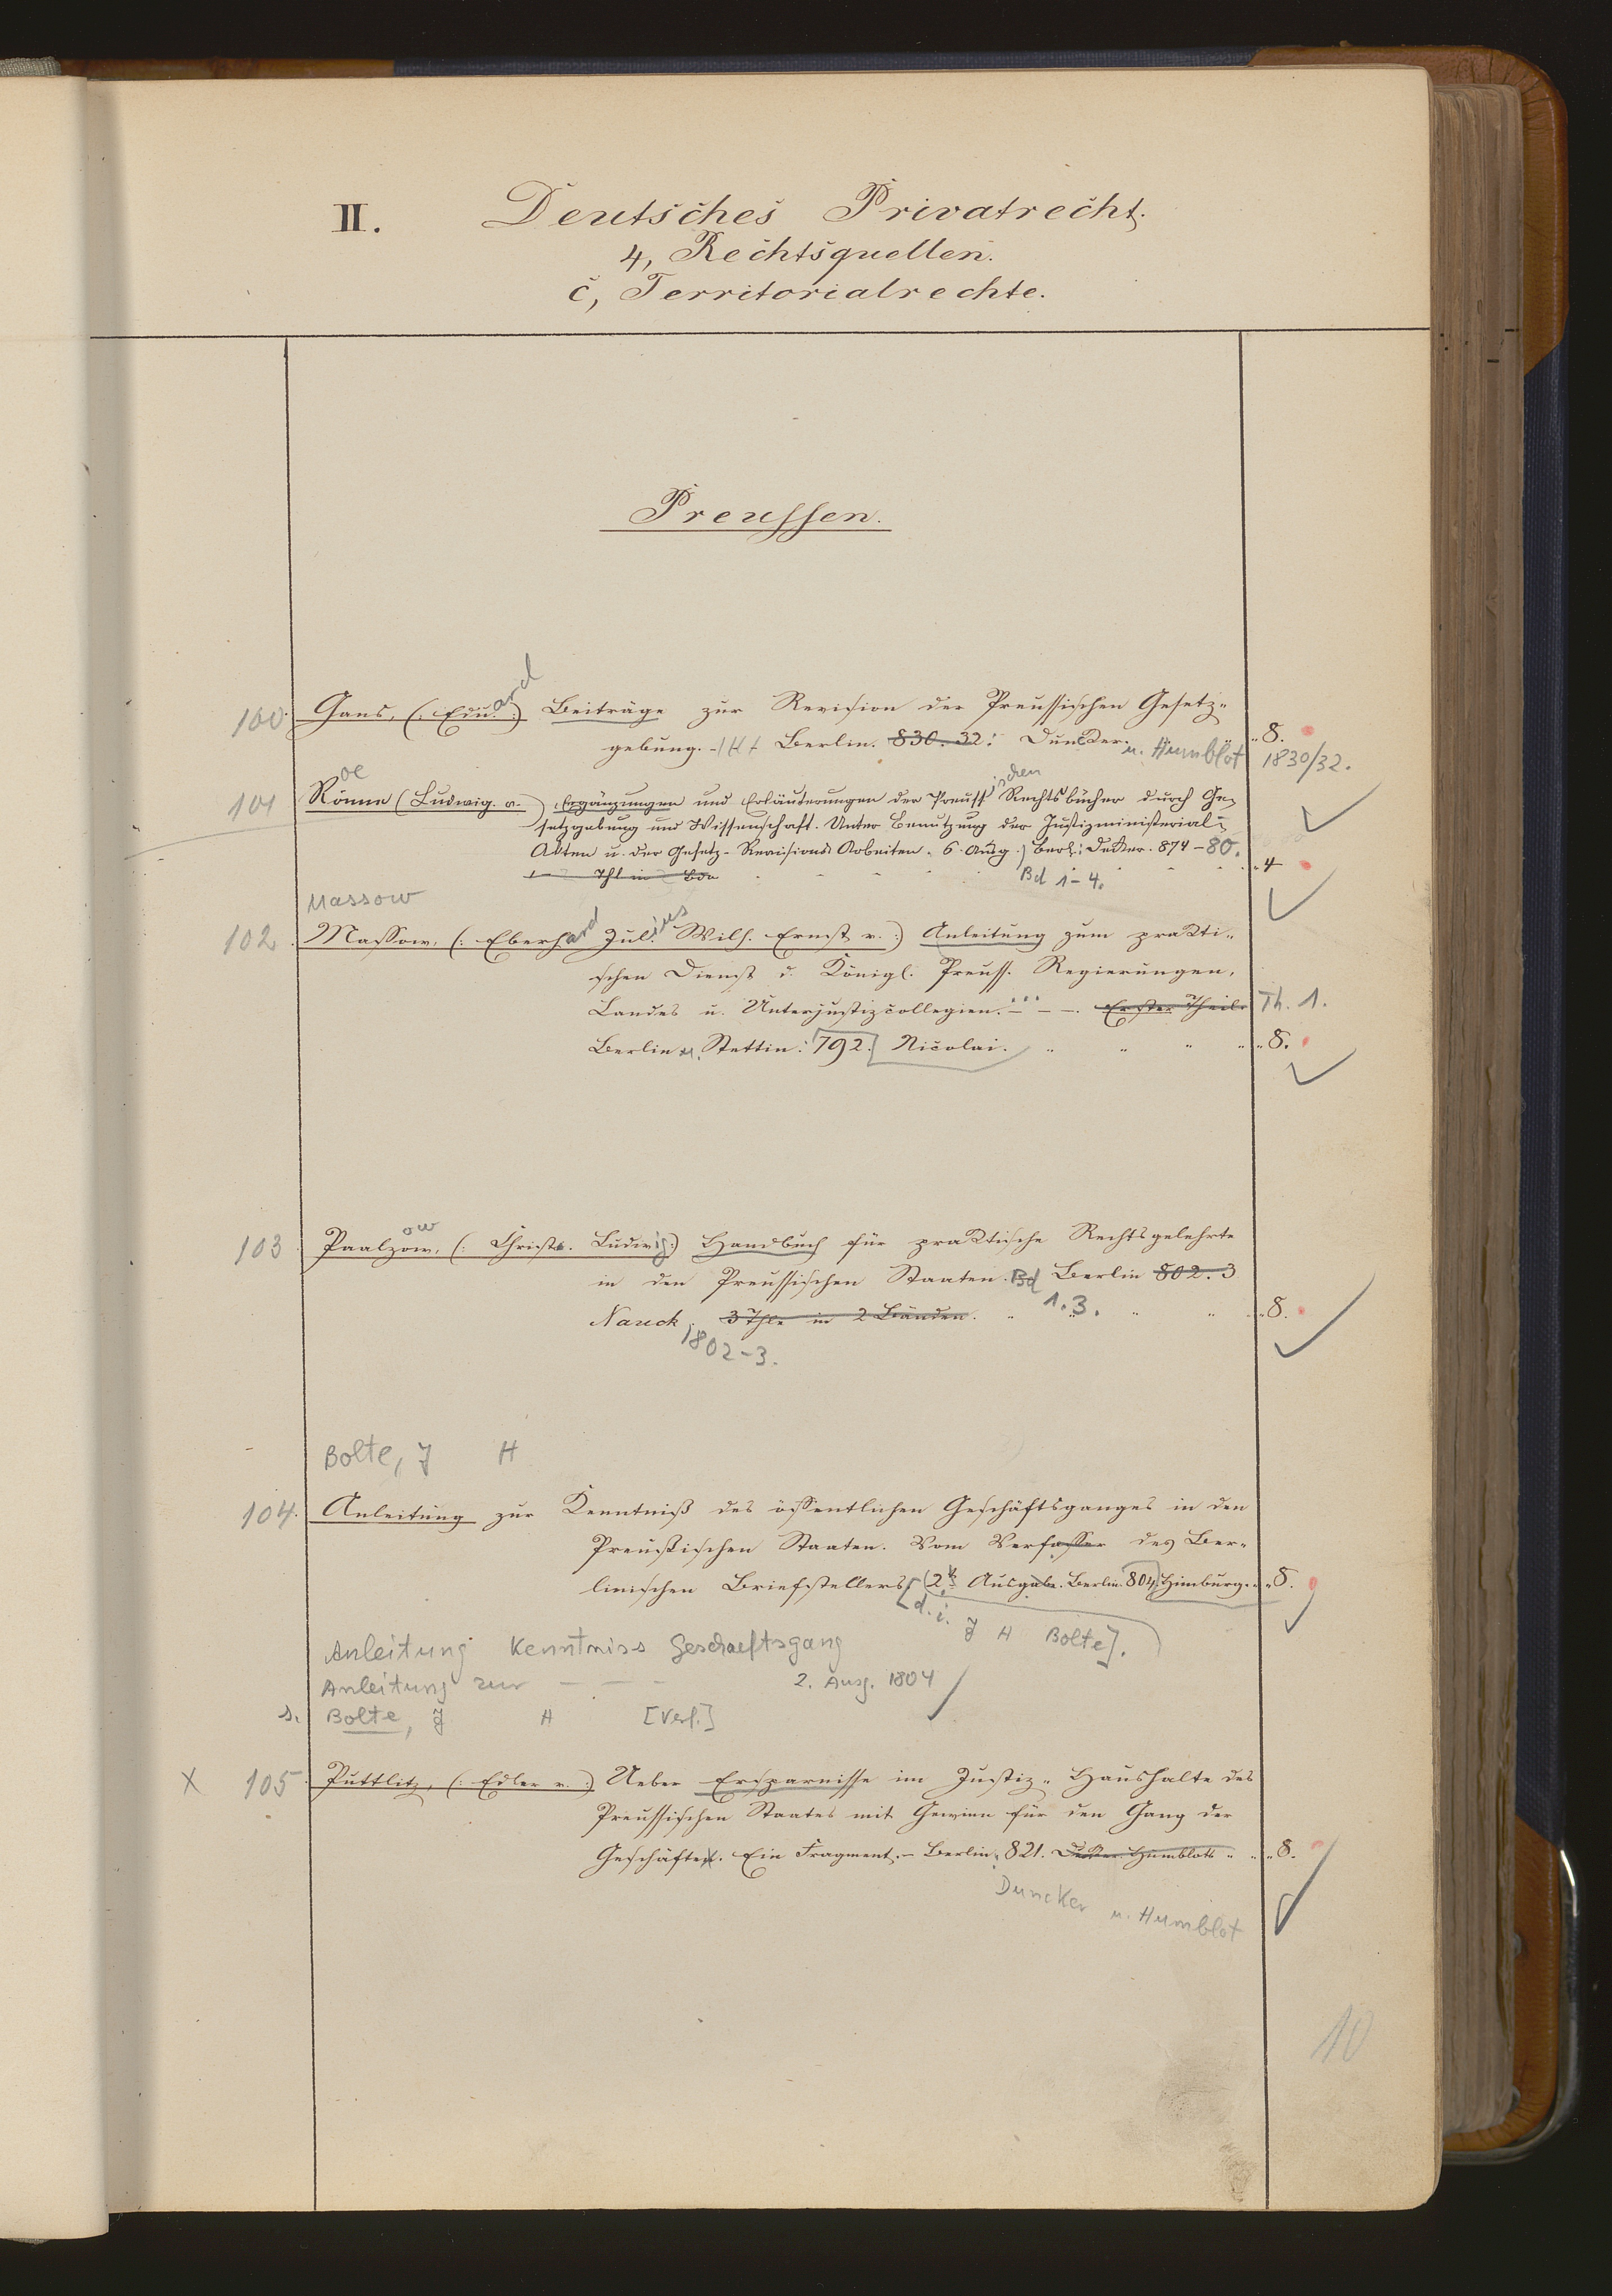 II. Deutsches Privatrecht.
4, Rechtsquellen.
c, Territorialrechte.
Preussen.
100. Gans, (: Eduard :) Beiträge zur Revision der Preussischen Gesetz-
gebung. Berlin. 830. 32. Duncker. u. Humblot 8.
1830/32.
oe
101 Rönne (Ludwig. v. ) Ergänzungen und Erläuterungen der Preussischen Rechtsbücher durch Ge-
setzgebung und Wissenschaft. Unter Benutzung der Justizministerial-
Akten u. der Gesetz-Revisions Arbeiten. 6. Ausg. Berl: Decker. 874-80.
Thl in Bdn Bd 1-4. 4
Massow
102. Massow, (: Eberhard Julius Wilh. Ernst v. :) Anleitung zum prakti-
schen Dienst d. Königl. Preuss. Regierungen,
Landes u. Unterjustizcollegien. ... Erster Theil. Th. 1.
Berlin u. Stettin: 792. Nicolai. 8.
ow
103. Paalzow, (: Christ. Ludwig :) Handbuch für praktische Rechtsgelehrte
in den Preussischen Staaten. Bd Berlin 802. 3
1.3.
Nauck. 3 Thle in 2 Bänden. 8.
1802-3.
Bolte, J H
104. Anleitung zur Kenntniß des öffentlichen Geschäftsganges in den
Preußischen Staaten. Vom Verfasser des Ber-
linischen Briefstellers (2te Ausgabe. Berlin. 804. Himburg. 8.
[d. i. J H Bolte].
Anleitung Kenntniss Geschaeftsgang
Anleitung zur — — — 2. Ausg. 1804
s. Bolte, J H [Verf.]
X 105. Puttlitz, (: Edler v. :) Ueber Ersparnisse im Justiz-Haushalte des
Preussischen Staates mit Gewinn für den Gang der
Geschäfte. Ein Fragment. - Berlin, 821. Humblott 8.
Duncker u. Humblot
10